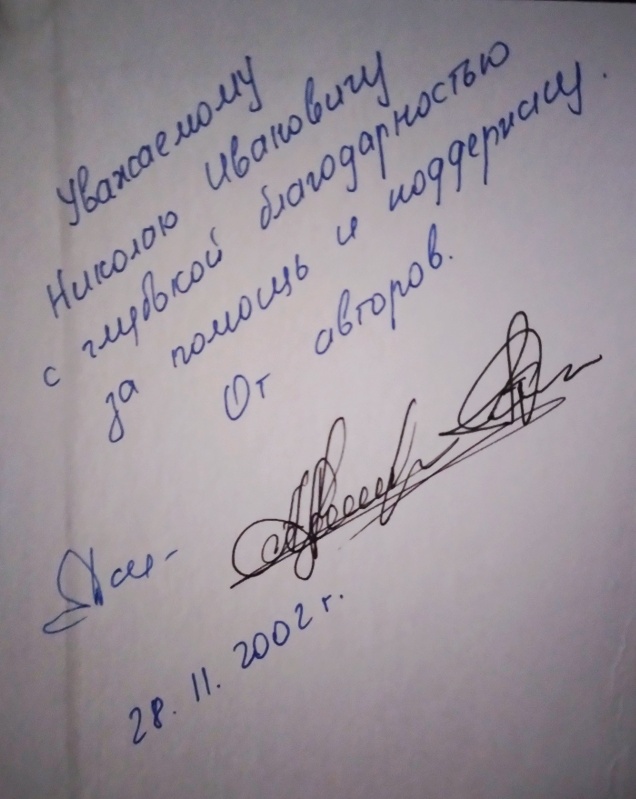 Уважаемому
Николаю Ивановичу
с глубокой благодарностью
за помощь и поддержку.
От авторов.
28. 11. 2002 г.